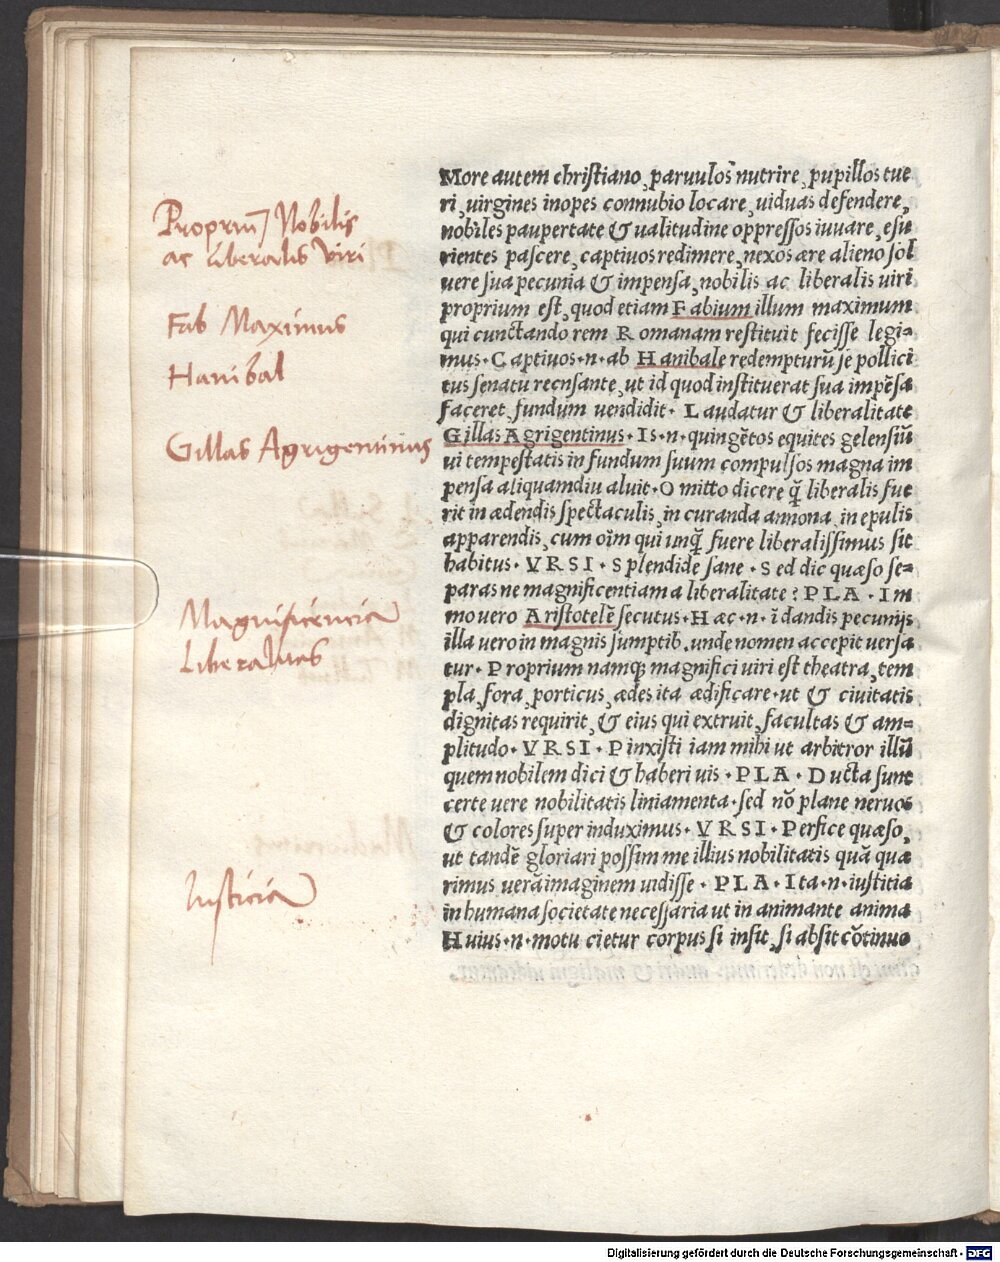 More autem christiano, paruulos nutrire, pupillos tue
ri, uirgines inopes connubio locare, uiduas defendere,
nobiles paupertate & ualitudine oppressos iuuare, esu
rientes pascere, captiuos redimere, nexos ære alieno sol
uere sua pecunia & impensa, nobilis ac liberalis uiri
proprium est, quod etiam Fabium illum maximum
qui cunctando rem Romanam restituit fecisse legi=
mus. Captiuos .n. ab Hanibale redempturū se pollici
tus senatu recnsante, ut id quod instituerat sua impēsa
faceret, fundum uendidit. Laudatur & liberalitate
Gillas Agrigentinus. Is .n. quingētos equites gelensiū
ui tempestatis in fundum suum compulsos magna im
pensa aliquamdiu aluit. Omitto dicere q̄ liberalis fue
rit in ædendis spectaculis, in curanda annona, in epulis
apparendis, cum oīm qui unq̄ fuere liberalissimus sit
habitus. VRSI. Splendide sane. Sed dic quæso se=
paras ne magnificentiam a liberalitate? PLA. Im
mo uero Aristotelē secutus. Hæc .n. ī dandis pecunijs
illa uero in magnis sumptib. unde nomen accepit uersa
tur. Proprium namq; magnifici uiri est theatra, tem
pla, fora, porticus, ædes ita ædificare. ut & ciuitatis
dignitas requirit, & eius qui extruit, facultas & am=
plitudo. VRSI. Pinxisti iam mihi ut arbitror illū
quem nobilem dici & haberi uis. PLA. Ducta sunt
certe uere nobilitatis liniamenta. sed nō plane neruos
& colores super induximus. VRSI. Perfice quæso,
ut tandē gloriari possim me illius nobilitatis quā quæ
rimus uerā imaginem uidisse. PLA. Ita .n. iustitia
in humana societate necessaria ut in animante anima
Huius .n. motu cietur corpus si insit, si absit cōtinuo
Propriū Nobilis
ac Liberalis Viri
Fab Maximus
Hanibal
Gillas Agrigentinus
Magnificencia
Liberalitas
Iusticia
Digitalisierung gefördert durch die Deutsche Forschungsgemeinschaft - DFG